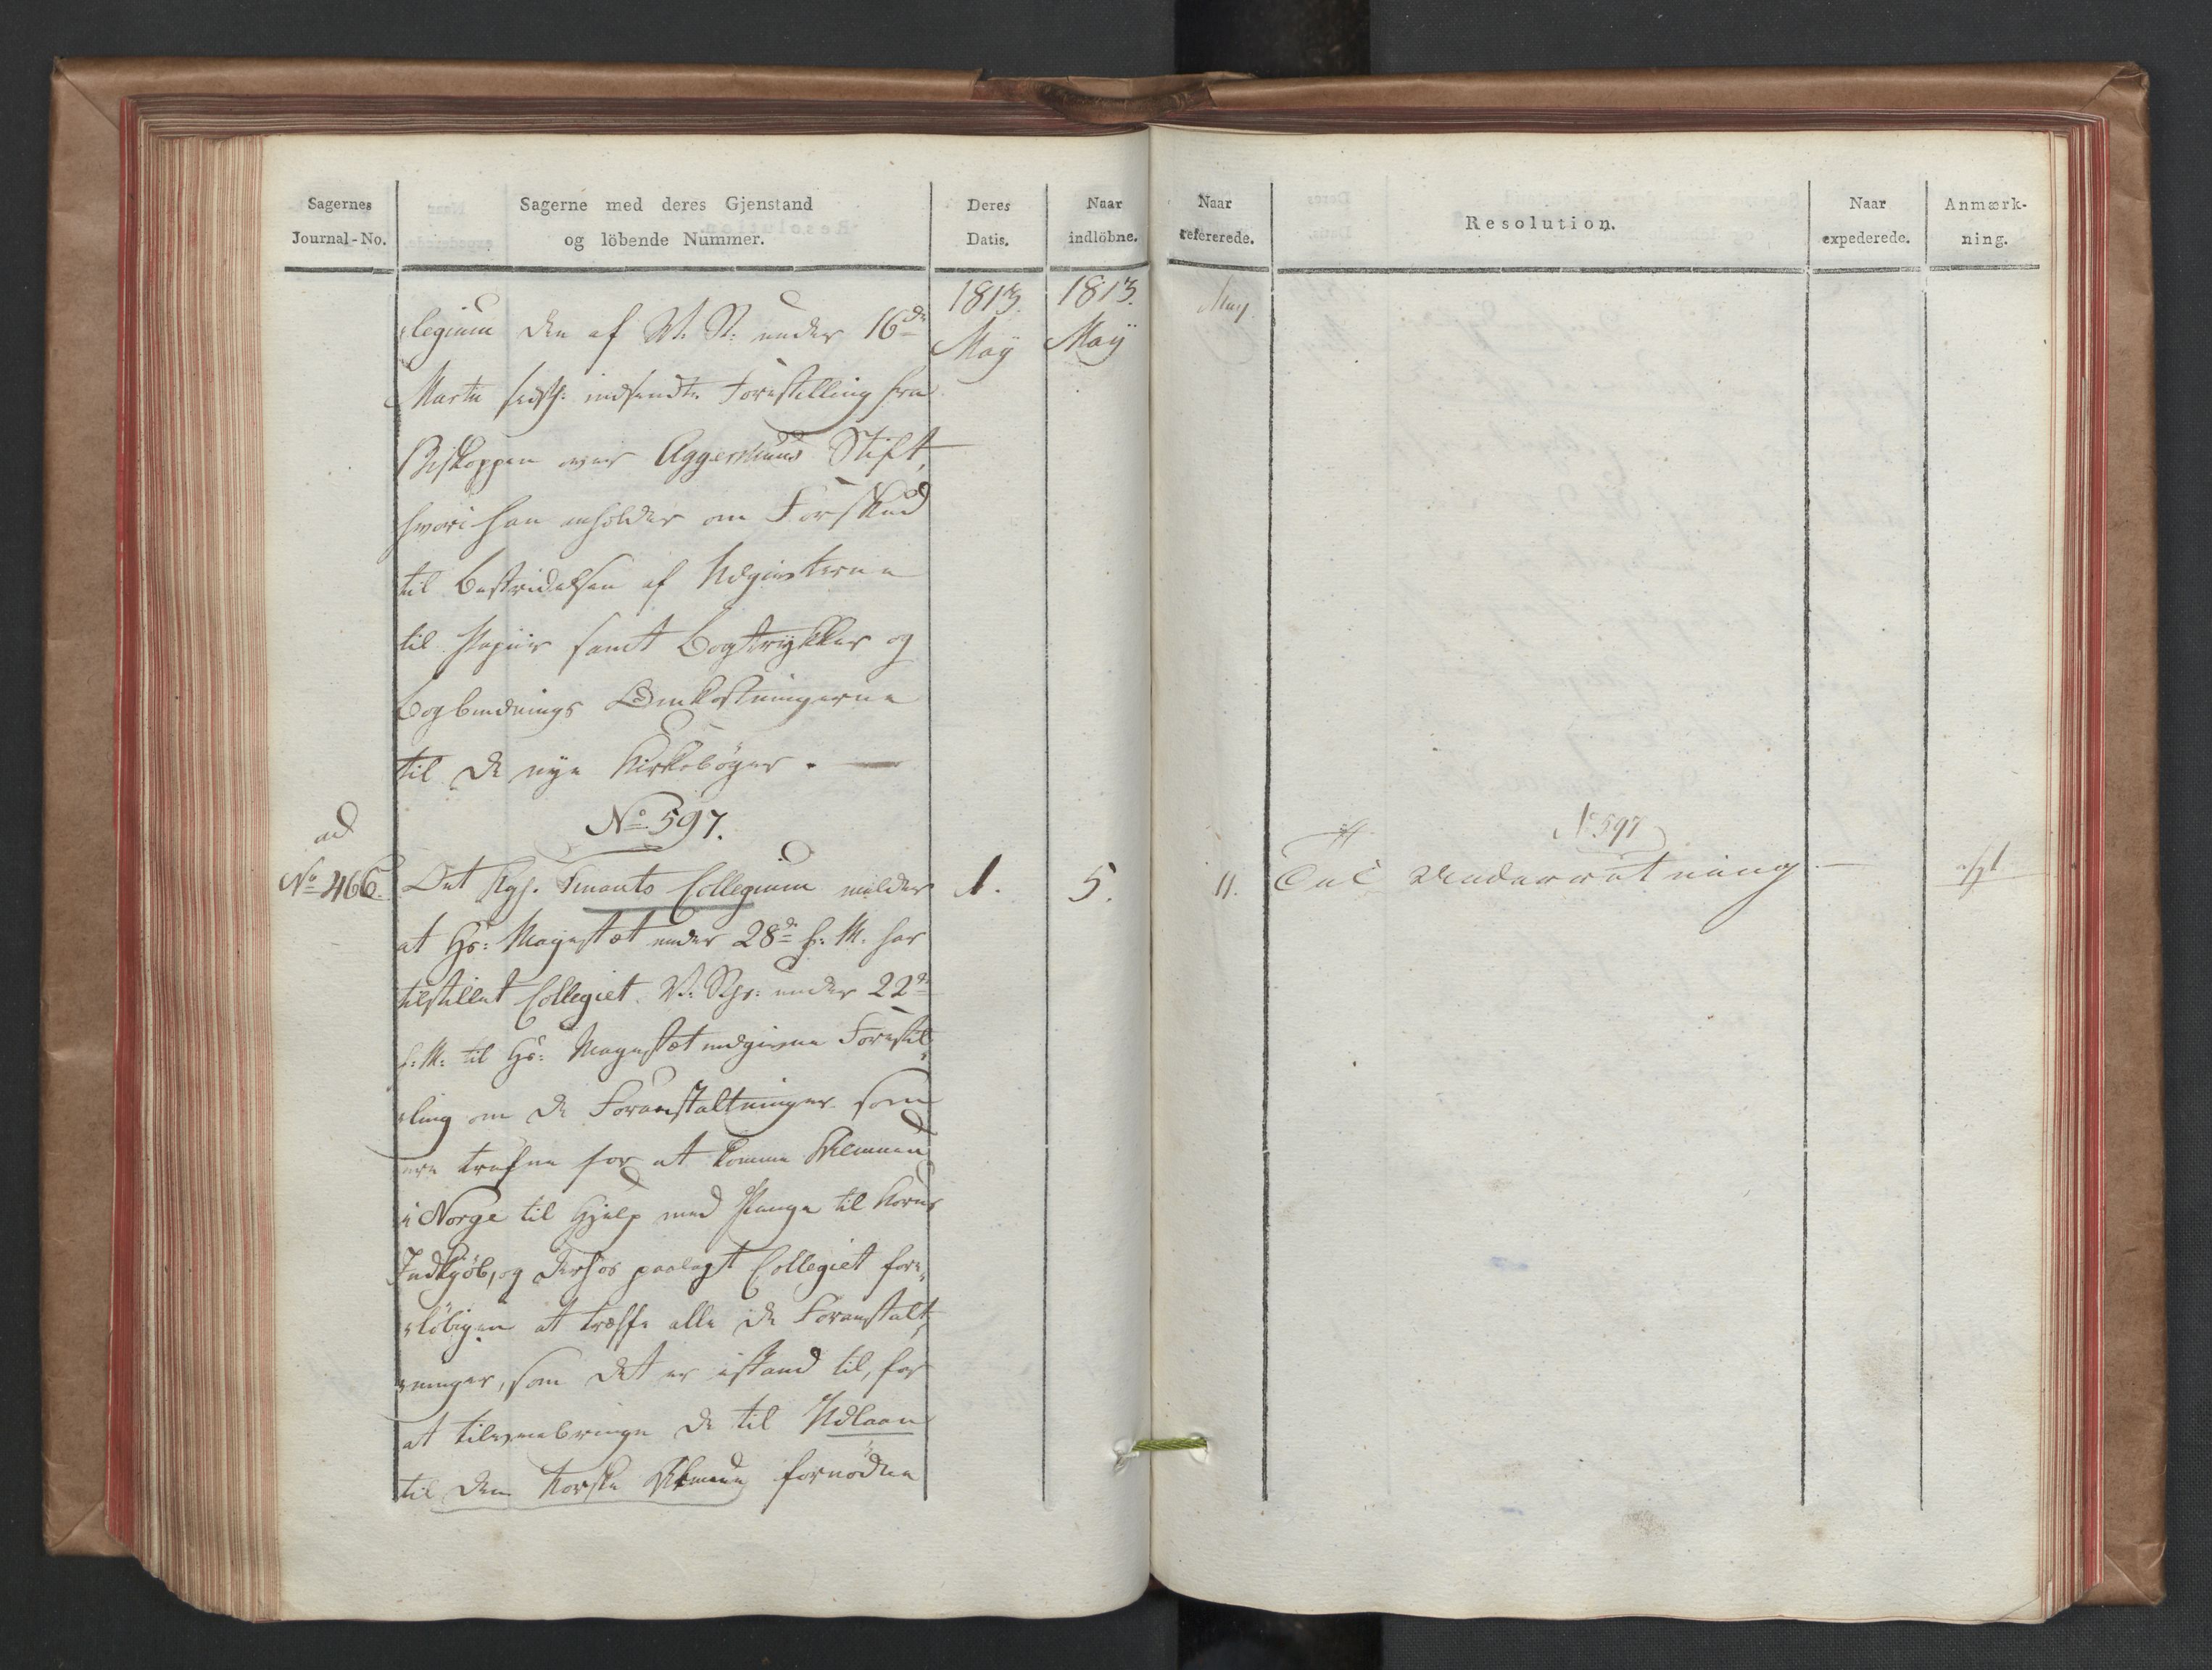 Sagernes
Journal-No.
Sagerne med deres Gjenstand
og löbende Nummer.
Deres
Datis.
Naar
indlöbne.
1813. 1813.
May May
legium den af V. R. under 16de
Martii sidstl. indsendte Forestilling fra
Biskoppen over Aggershuus Stift,
hvori han anholder om Forskud
til Bestridelsen af Udgivterne
til Papiir samt Bogtrykker og
Bogbindnings Omkostningerne
til de nye Kirkebøger.
No 597.
ad
No 466.
Det Kgl. Finants Collegium melder
1.
5.
at Hs: Majestæt under 28de f: M. har
tilstillet Collegiet V: Rgs: under 22de
f: M: til Hs: Majestæt indgivne Forestil
ling om de Foranstaltninger som
ere trufne for at komme Almuen
i Norge til Hjelp med Penge til Korns
Indkjøb, og derhos paalagt Collegiet fore
løbigen at træffe alle de Foranstalt
ninger, som det er istand til, for
at tilveiebringe de til Udlaan
til den Norske Almue fornødne
Naar
refererede.
Resolution.
Naar
expederede.
Anmærk-
ning.
May.
No 597
11.
Til Underretning